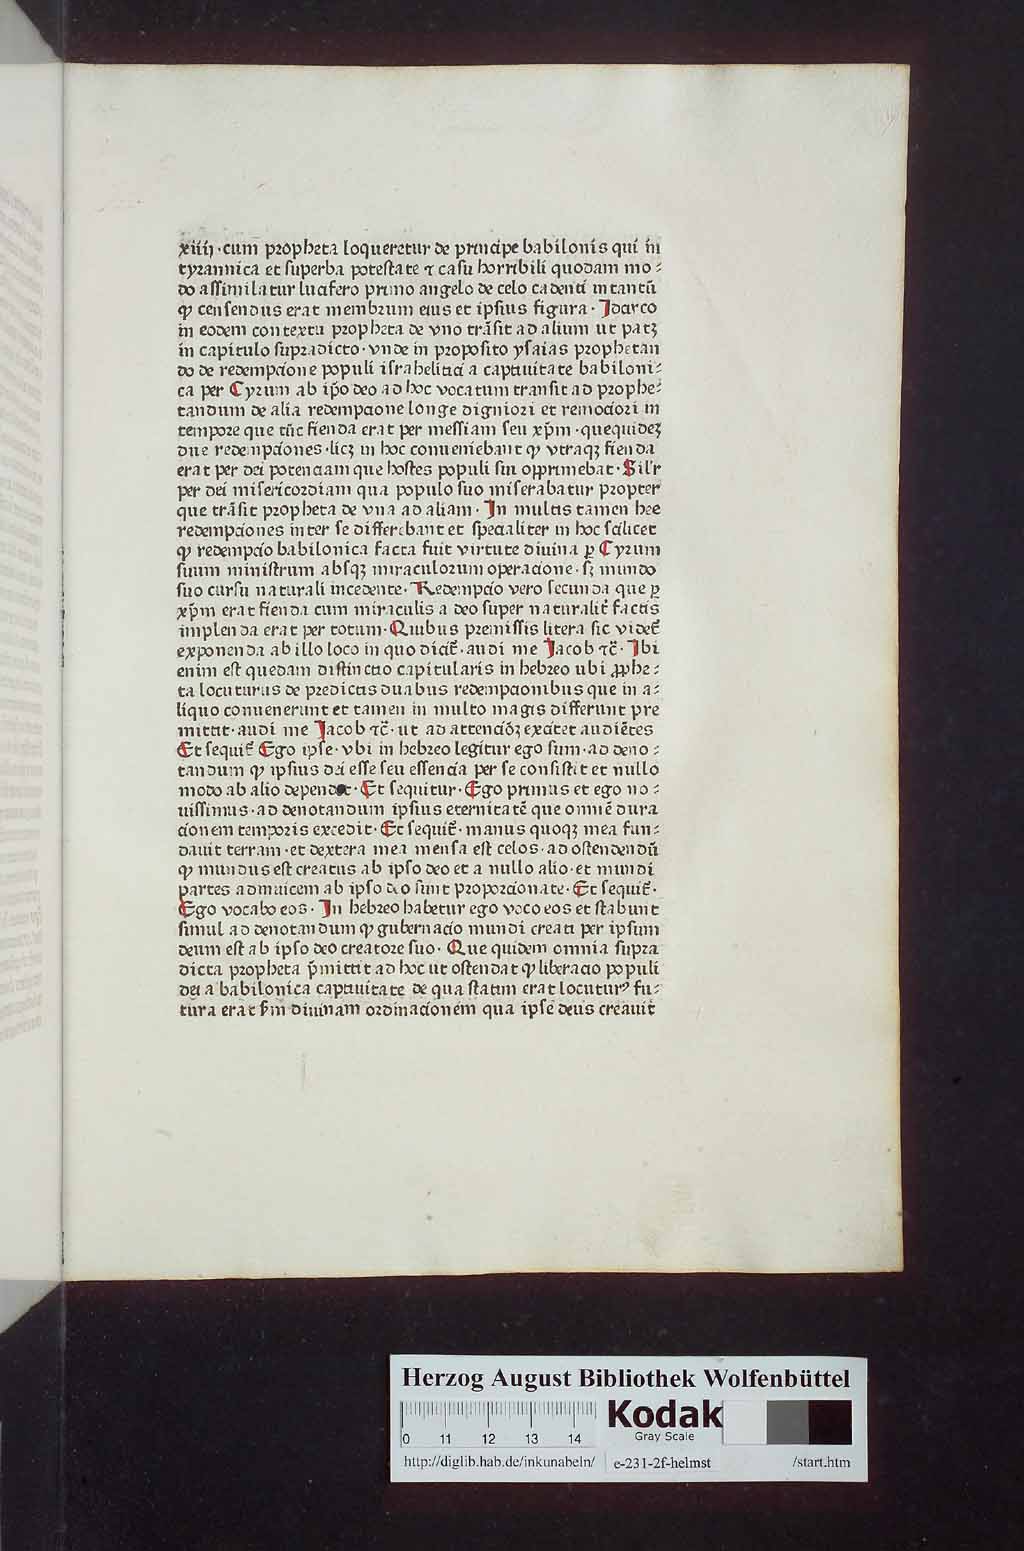 xiiij ·cum propheta loqueretur de principe babilonis qui in
tyrannica et superba potestate ⁊ casu horribili quodam mo⸗
do assimilatur lucifero primo angelo de celo cadenti in tantū
ꝙ censendus erat membrum eius et ipsius figura· Idarco
in eodem contextu propheta de vno trāsit ad alium ut patꝫ
in capitulo supradicto· vnde in proposito ysaias prophetan
do de redempcione populi israhelitici a captiuitate babiloni⸗
ca per Cyrum ab ip̄o deo ad hoc vocatum transit ad prophe⸗
tandum de alia redempcione longe digniori et remociori in
tempore que tūc fienda erat per messiam seu xp̄m ·quequideꝫ
due redempciones ·licꝫ in hoc conueniebant ꝙ vtraqꝫ fienda
erat per dei potenciam que hostes populi sui opprimebat· Sil'r
per dei misericordiam qua populo suo miserabatur propter
que trāsit propheta de vna ad aliam· In multis tamen hee
redempciones inter se differebant et specialiter in hoc scilicet
ꝙ redempcio babilonica facta fuit virtute diuina ꝑ Cyrum
suum ministrum absqꝫ miraculorum operacione· sꝫ mundo
suo cursu naturali incedente· Redempcio vero secunda que ꝑ
xp̄m erat fienda cum miraculis a deo super naturalit̄ factis
implenda erat per totum· Quibus premissis litera sic videt᷑
exponenda ab illo loco in quo dicit᷑· audi me Jacob ⁊c̄· Ibi
enim est quedam distinctio capitularis in hebreo ubi ꝓphe⸗
ta locuturus de predictis duabus redempcionibus que in a⸗
liquo conuenerunt et tamen in multo magis differunt pre
mittit· audi me Jacob ⁊c̄· ut ad attenciōꝫ excitet audiētes
Et sequit᷑ Ego ipse· vbi in hebreo legitur ego sum· ad deno⸗
tandum ꝙ ipsius dei esse seu essencia per se consistit et nullo
modo ab alio dependet· Et sequitur· Ego primus et ego no⸗
uissimus· ad denotandum ipsius eternitatē que omnē dura
cionem temporis excedit· Et sequit᷑· manus quoqꝫ mea fun⸗
dauit terram· et dextera mea mensa est celos· ad ostendendū
ꝙ mundus est creatus ab ipso deo et a nullo alio· et mundi
partes admuicem ab ipso deo sunt proporcionate· Et sequit᷑·
Ego vocabo eos· In hebreo habetur ego voco eos et stabunt
simul ad denotandum ꝙ gubernacio mundi creati per ipsum
deum est ab ipso deo creatore suo· Que quidem omnia supra
dicta propheta p̄mittit ad hoc ut ostendat ꝙ liberacio populi
dei a babilonica captiuitate de qua statim erat locuturꝰ fu⸗
tura erat s̄m diuinam ordinacionem qua ipse deus creauit
Herzog August Bibliothek Wolfenbüttel
0 11 12 13 14
Kodak
Gray Scale
http://diglib.hab.de/inkunabeln/ e-231-2f-helmst /start.htm